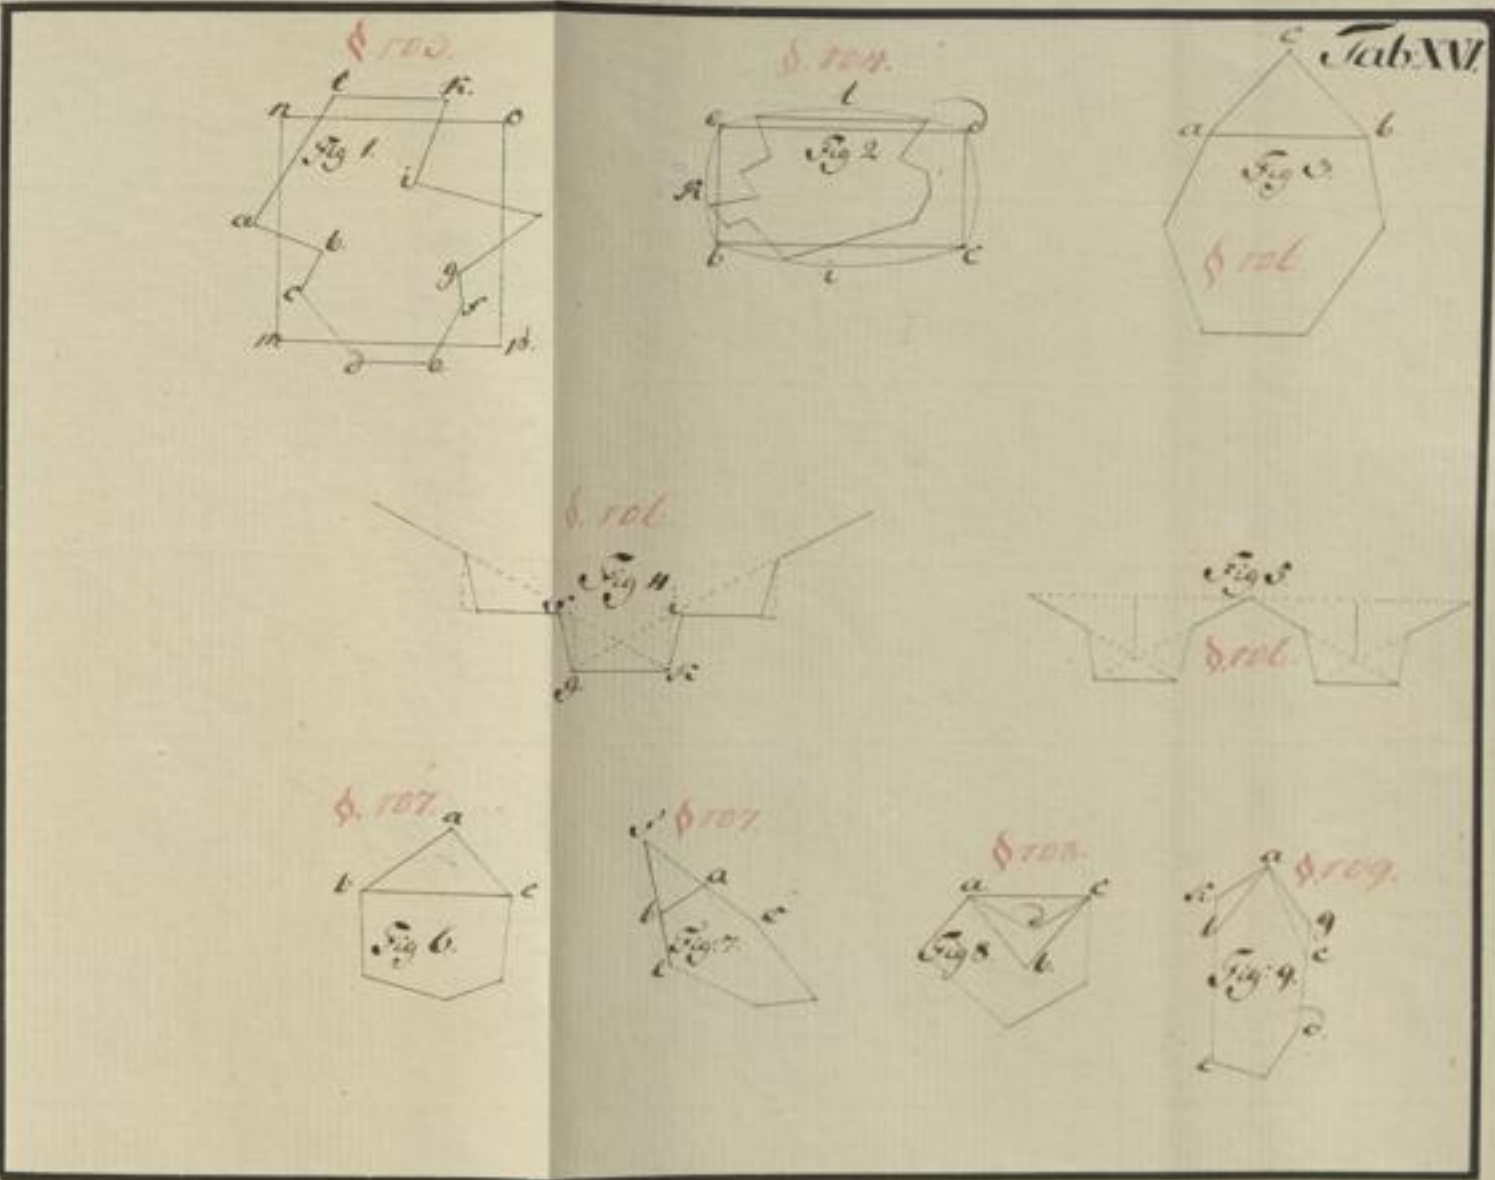 Tab XVI.
§ 103.
l k.
n o
Fig 1.
i
a b
g
c f
m p.
d e
§. 104.
l
Fig 2
K
b c
i
c
a b
Fig 3.
§ 106
§. 106
Fig 4
g. K
Fig 5
§. 106.
§. 107.
a
b c
Fig 6.
§ 107.
f
a
b c
Fig: 7.
e
§ 108.
a c
d
Fig 8.
b.
§. 109.
a
b g
c
Fig: 9.
d.
e